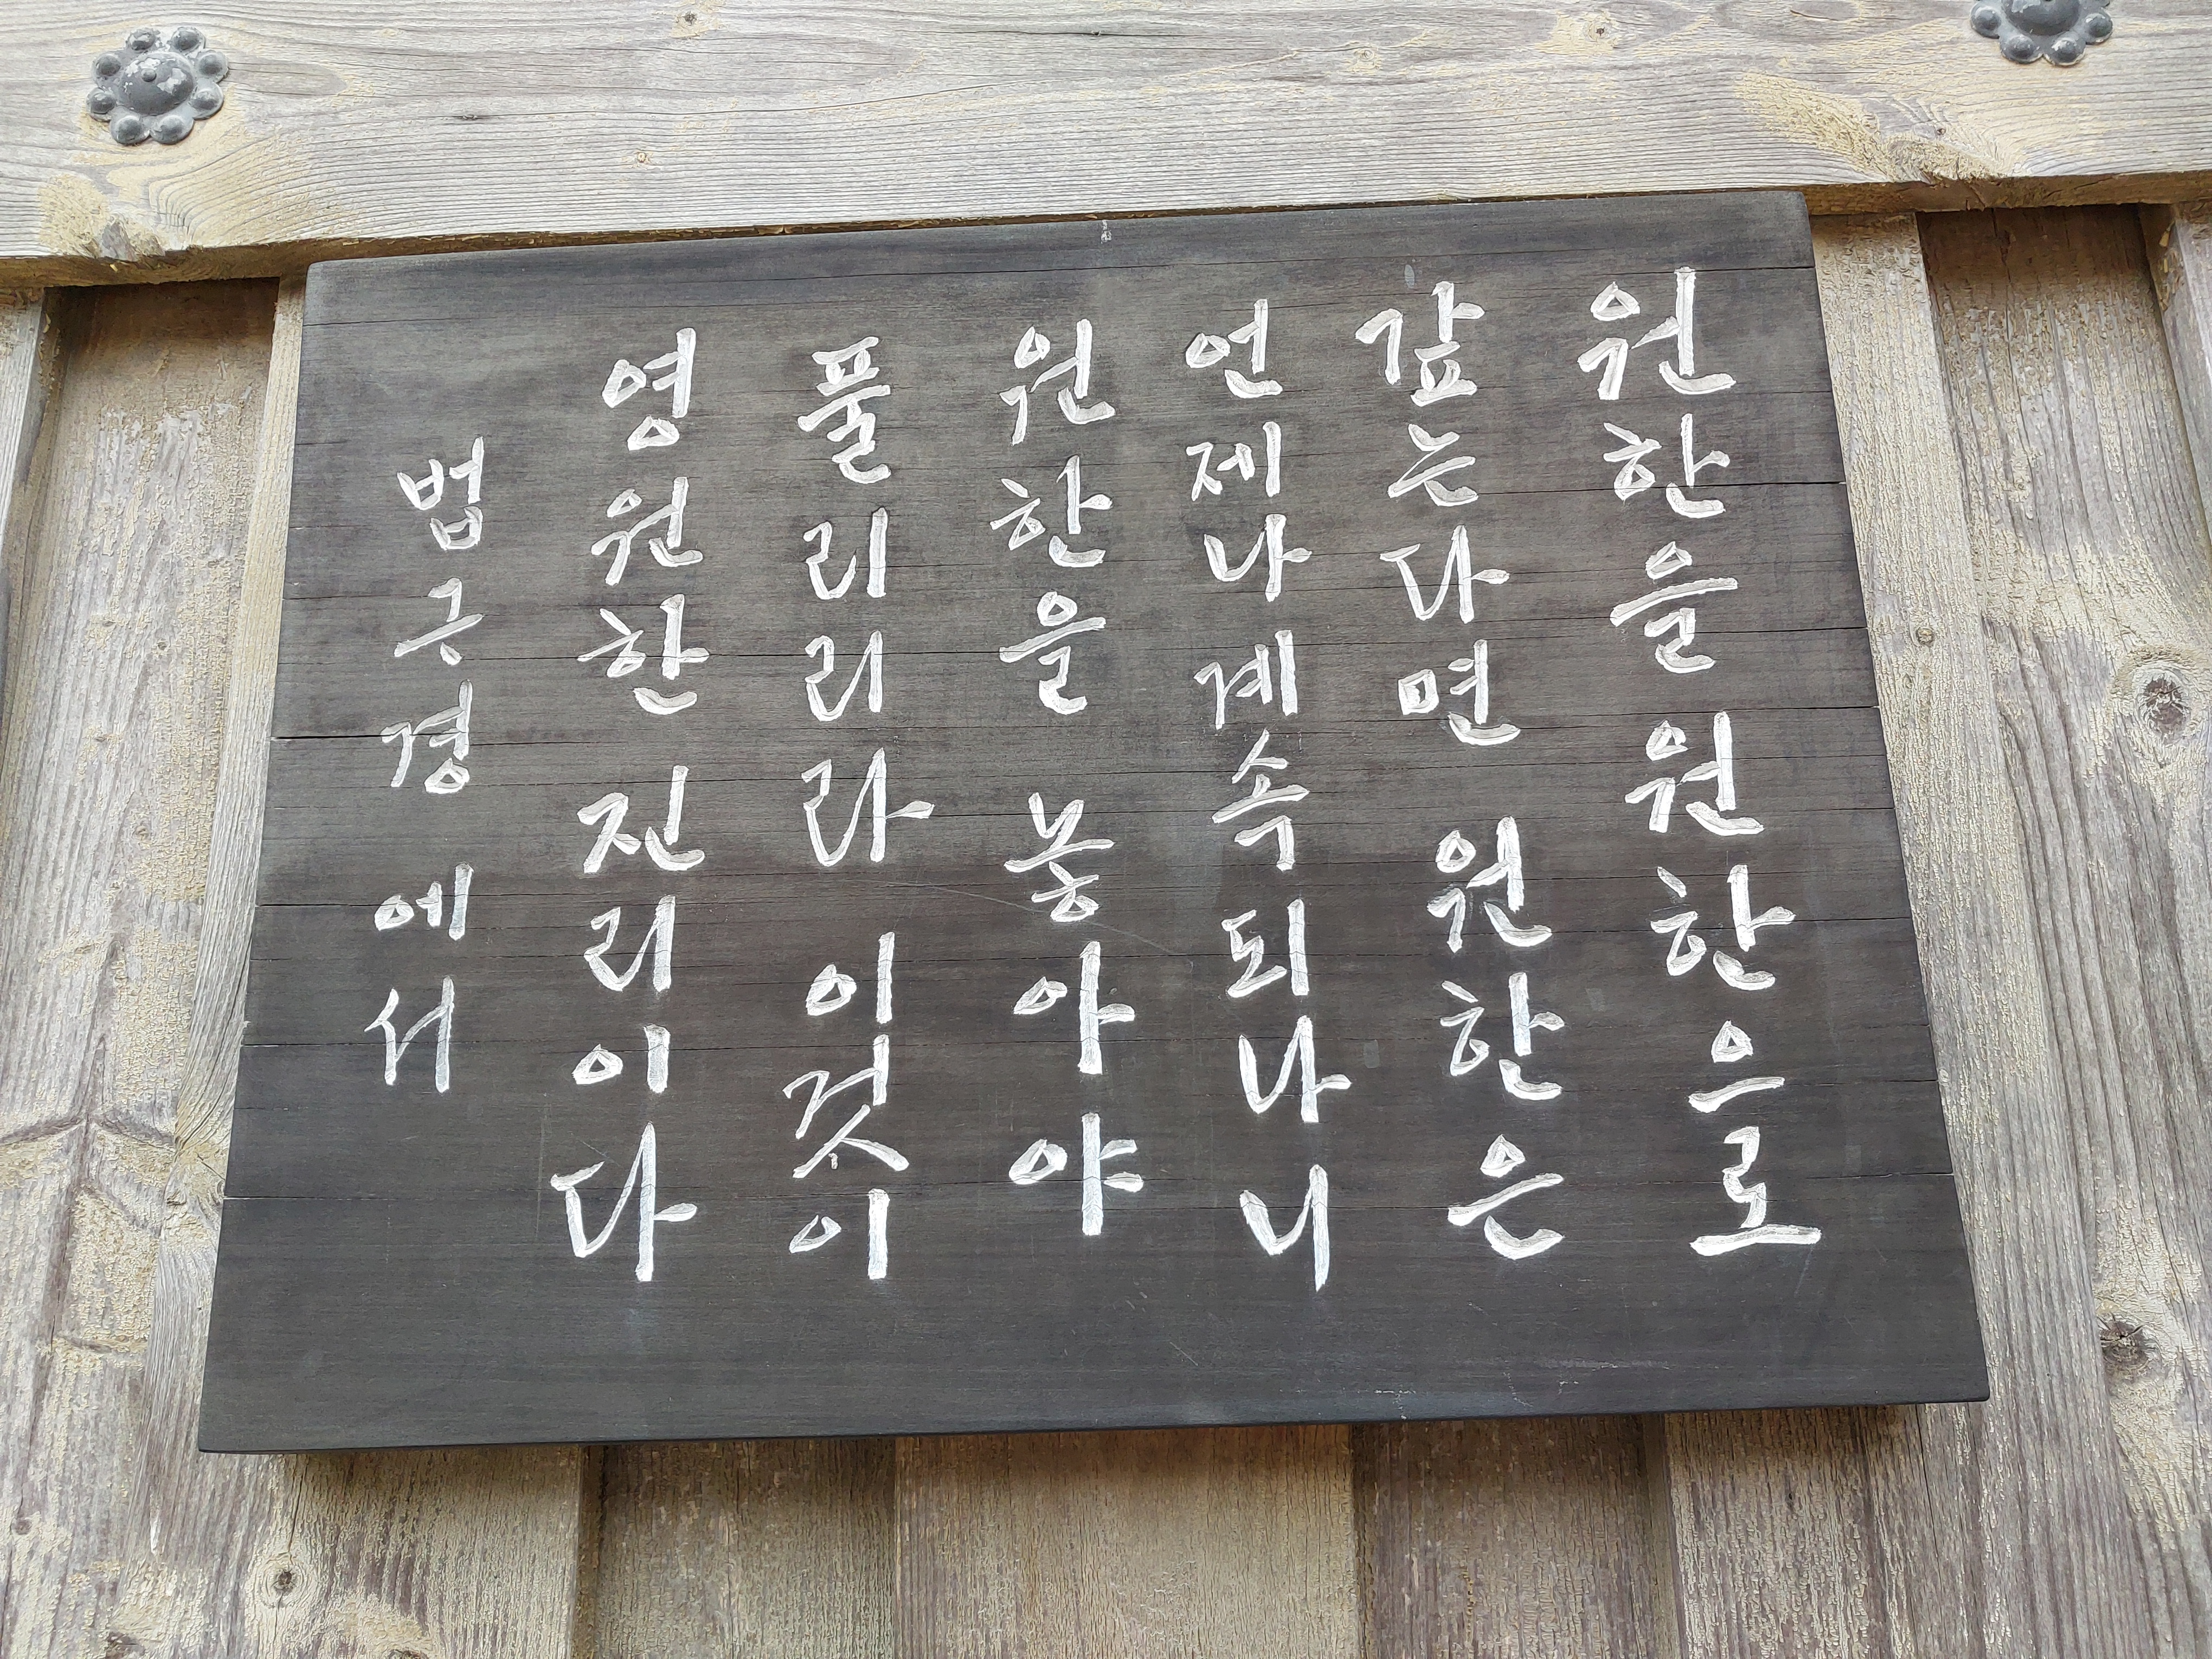 원한을 원한으로
갚는다면 원한은
언제나 계속되나니
원한을 놓아야
풀리리라 이것이
영원한 진리이다
법구경에서